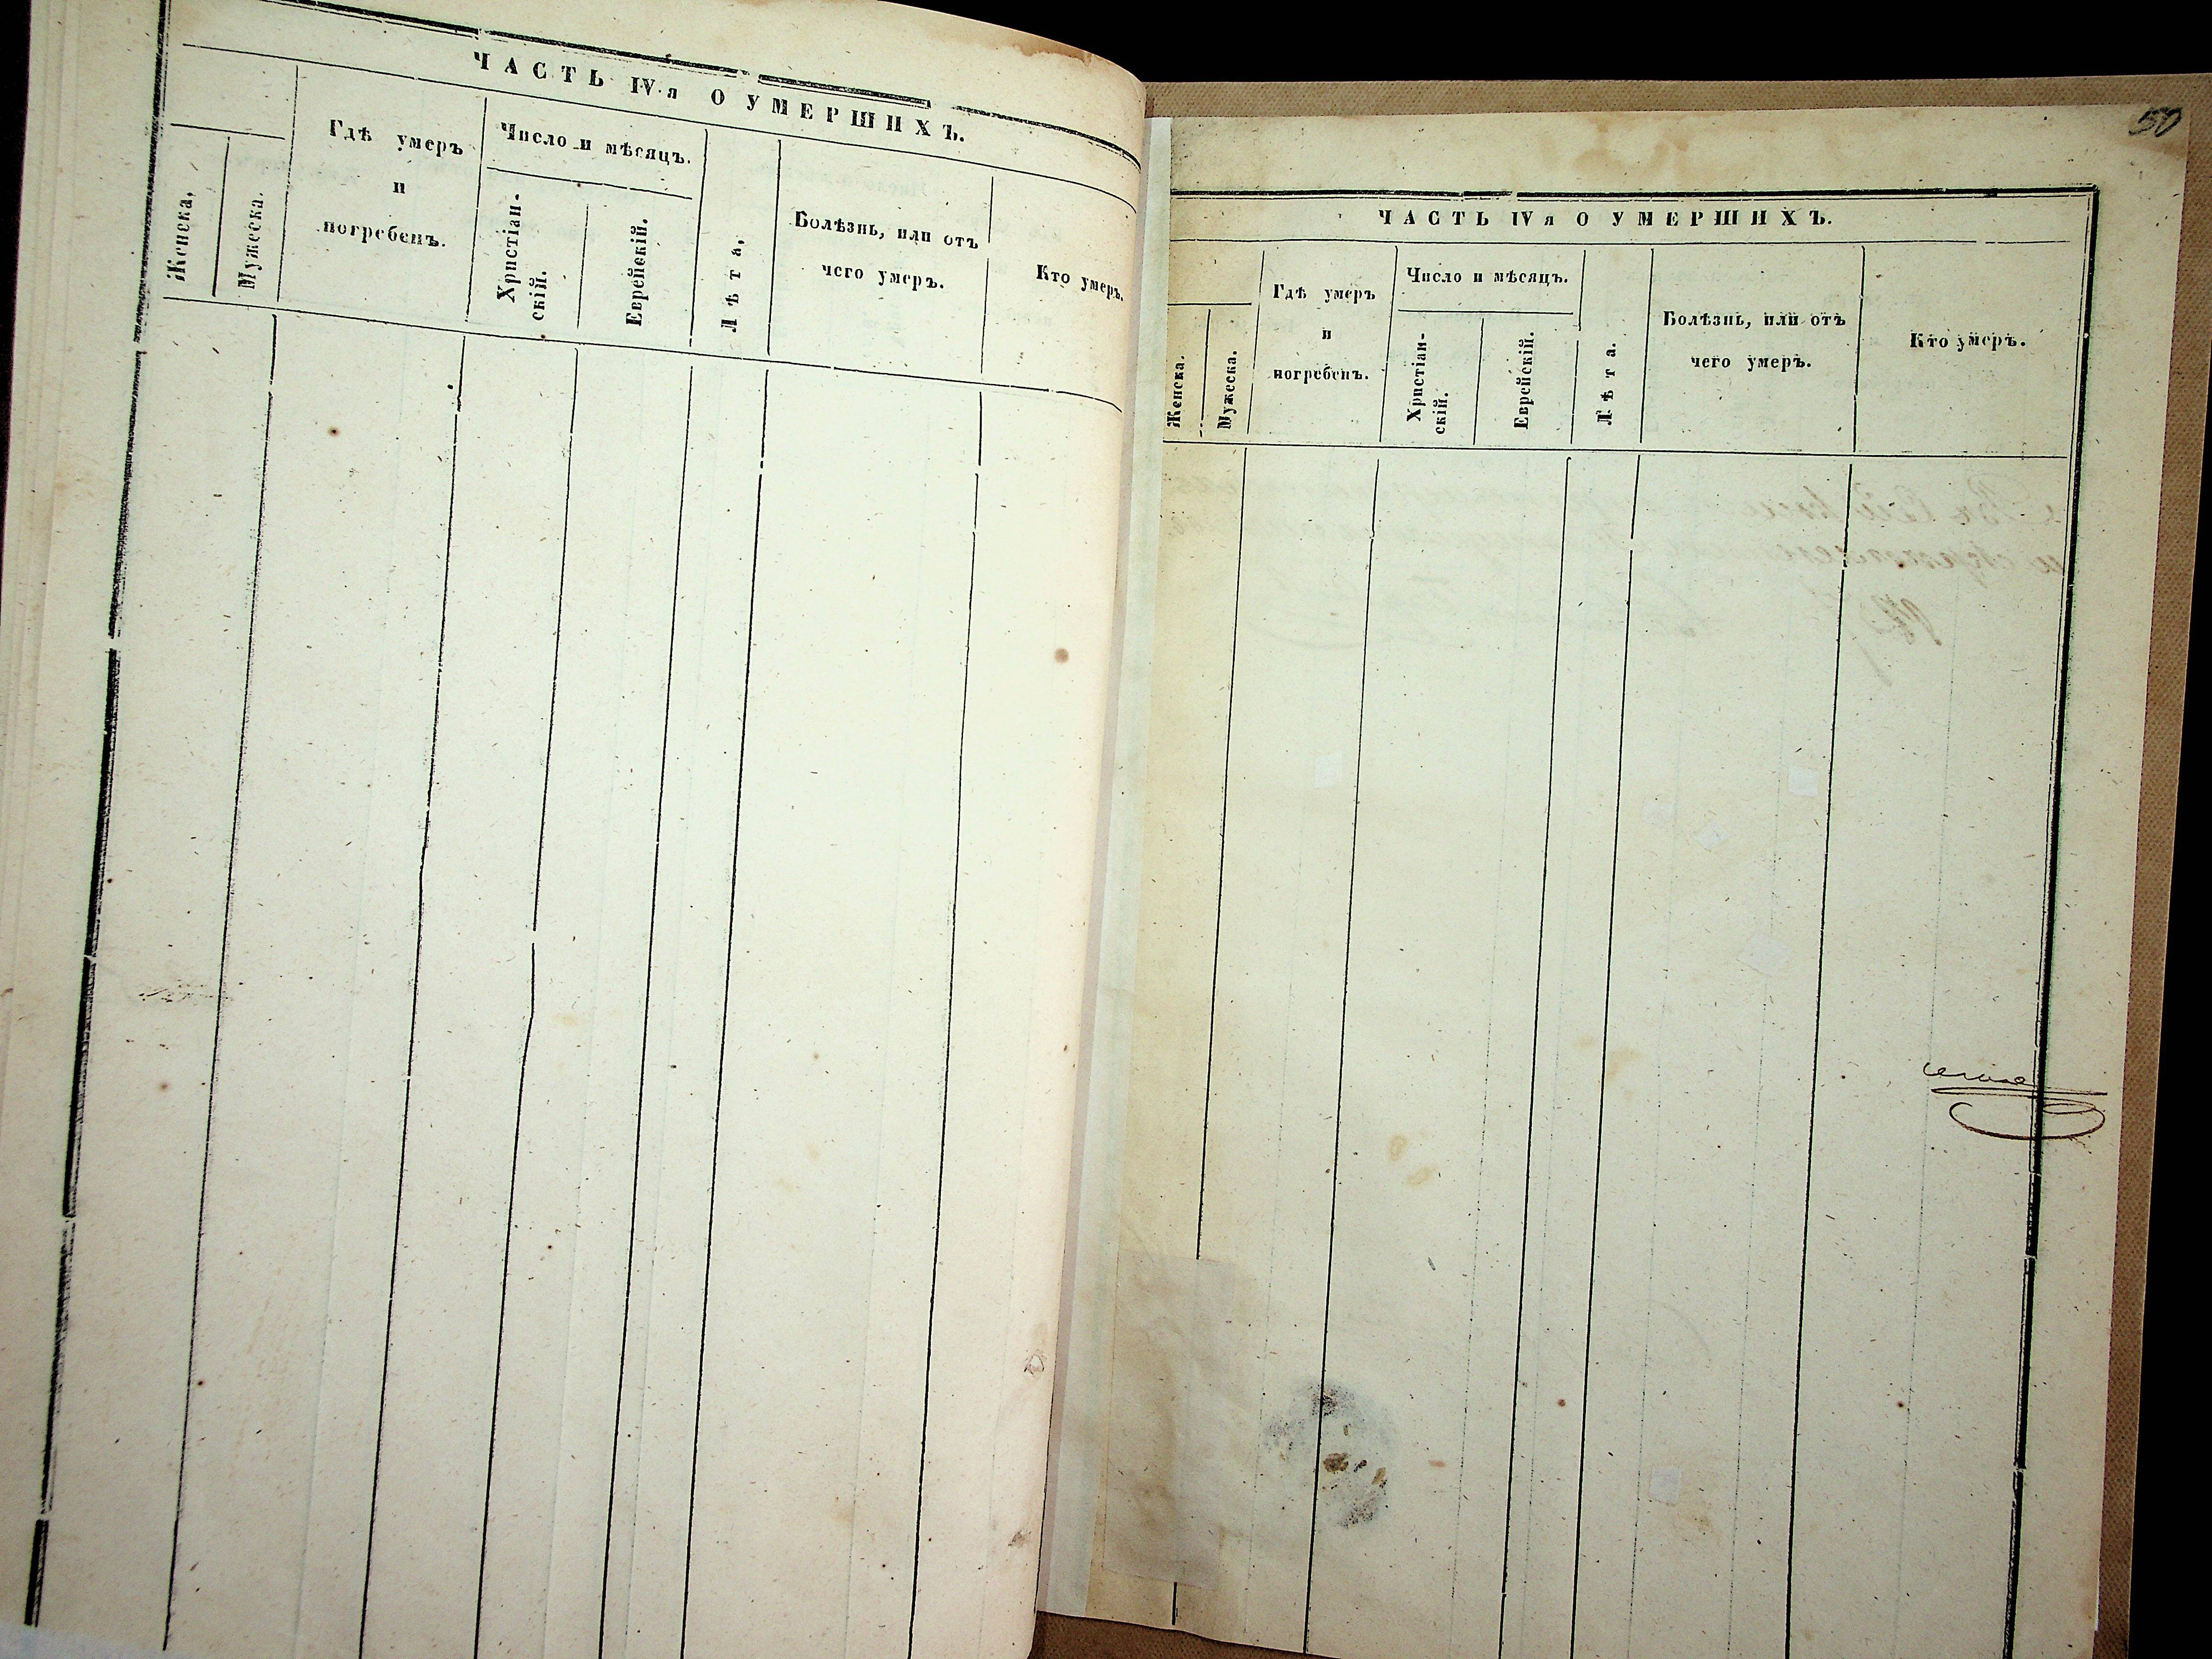 ЧАСТЬ IV-я О УМЕРШИХЪ.
Женска,
Мужеска.
Гдѣ умеръ
и
погребенъ.
Число и мѣсяцъ.
Христіан-
скій.
Еврейскій.
Лѣта,
Болѣзнь, или отъ
чего умеръ.
Кто умеръ.
50
ЧАСТЬ IV я О УМЕРШИХЪ.
Женска.
Мужеска.
Гдѣ умеръ
и
погребенъ.
Число и мѣсяцъ.
Христіан-
скій.
Еврейскій.
Лѣта.
Болѣзнь, или отъ
чего умеръ.
Кто умеръ.